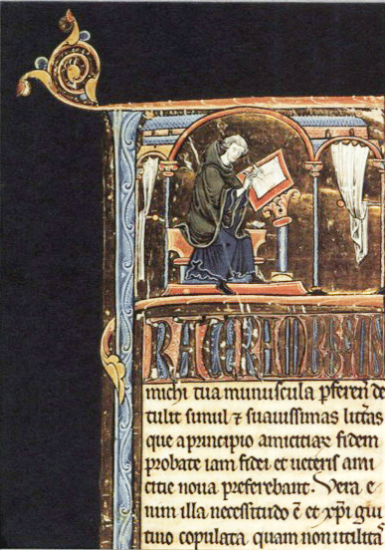 RATER AMBROSIUS
michi tua munuscula ꝑferen̄ de
tulit simul ⁊ suauissimas litt̄as
que a principio amicitiaꝝ fidem
probate iam fidei et ueteris ami
citie noua preferebant. Vera e
nim illa necessitudo ē et xp̄i glu
tino copulata quam non utilitas